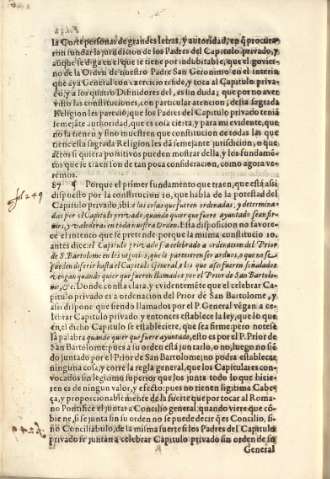 la Corte personas de grandes letras, y autoridad, en q̃ procura-
ron fundar la jurisdicion de los Padres del Capitulo privado, y
aunque se diga en el que es tiene por indubitable, que el govier-
no de la Orden de nuestro Padre San Geronimo en el interin
que aya General con exercicio reside, y toca al Capitulo priva
do, y a los quatro Difinidores del, es sin duda; que por no aver
visto las constituciones, con particular atencion, desta sagrada
Religion les pareciò, que los Padres del Capitulo privado tenià
semejãte autoridad, que es cosa cierta, y para mi evidente, que
no la tienen y sino muestren que constitucion de todas las que
tiene essa sagrada Religion les dà semejante jurisdicion, o que
actos si quiera positivos pueden mostrar della, y los fundamẽ-
tos que se traen son de tan poca consideracion, como agora
veremos.
87 ¶ Porque el primer fundamento que traen, que està assi
dispuesto por la constitucion 10. que habla de la potestad del
Capitulo privado, ibi: e las cosas que fueren ordenadas, y determina-
das por el Capitulo privado, quando quier que fuere ayuntado sean fir-
mes, y valederas en toda nuestra Orden. Esta disposicion no favore-
ce el intento que se pretende porque la misma constitucio 10.
antes dice: el Capitulo privado sea celebrado a ordenacion del Prior
de S. Bartolome en los negocios, que le parecieren ser arduos, y que no se
pueden diferir hasta el Capitulo General, a los que assi fueren señalados,
è que quando quier que fueren llamados por el Prior de San Bartolo-
me, &c. Donde consta clara, y evidentemẽte que el celebrar Ca-
pitulo privado es a ordenacion del Prior de San Bartolome, y
assi dispone que siendo llamados por el P. General vẽgan a ce-
lebrar Capitulo privado y entonces establece la ley, que lo que
en el dicho Capitulo se estableciere, que sea firme: pero notese
la palabra quando quier que fuere ayuntado, esto es por el P. Prior de
San Bartolome; pues a su orden està juntarlo, o no, luego no siẽ
do juntado por el Prior de San Bartolome, no podrà establecer
ninguna cosa, y corre la regla general, que los Capitulares con-
vocados sin legitimo superior que los junte todo lo que hicie-
ren es de ningun valor, y efecto: pues no tienen legitima Cabe-
ça, y proporcionablemente de la suerte que por tocar al Roma-
no Pontifice el juntar a Concilio general, quando viere que cõ-
viene, si se junta sin su orden no se puede decir q̃ es Concilio, si-
no Conciliabulo, de la misma suerte si los Padres del Capitulo
privado se juntan a celebrar Capitulo privado sin orden de su
General